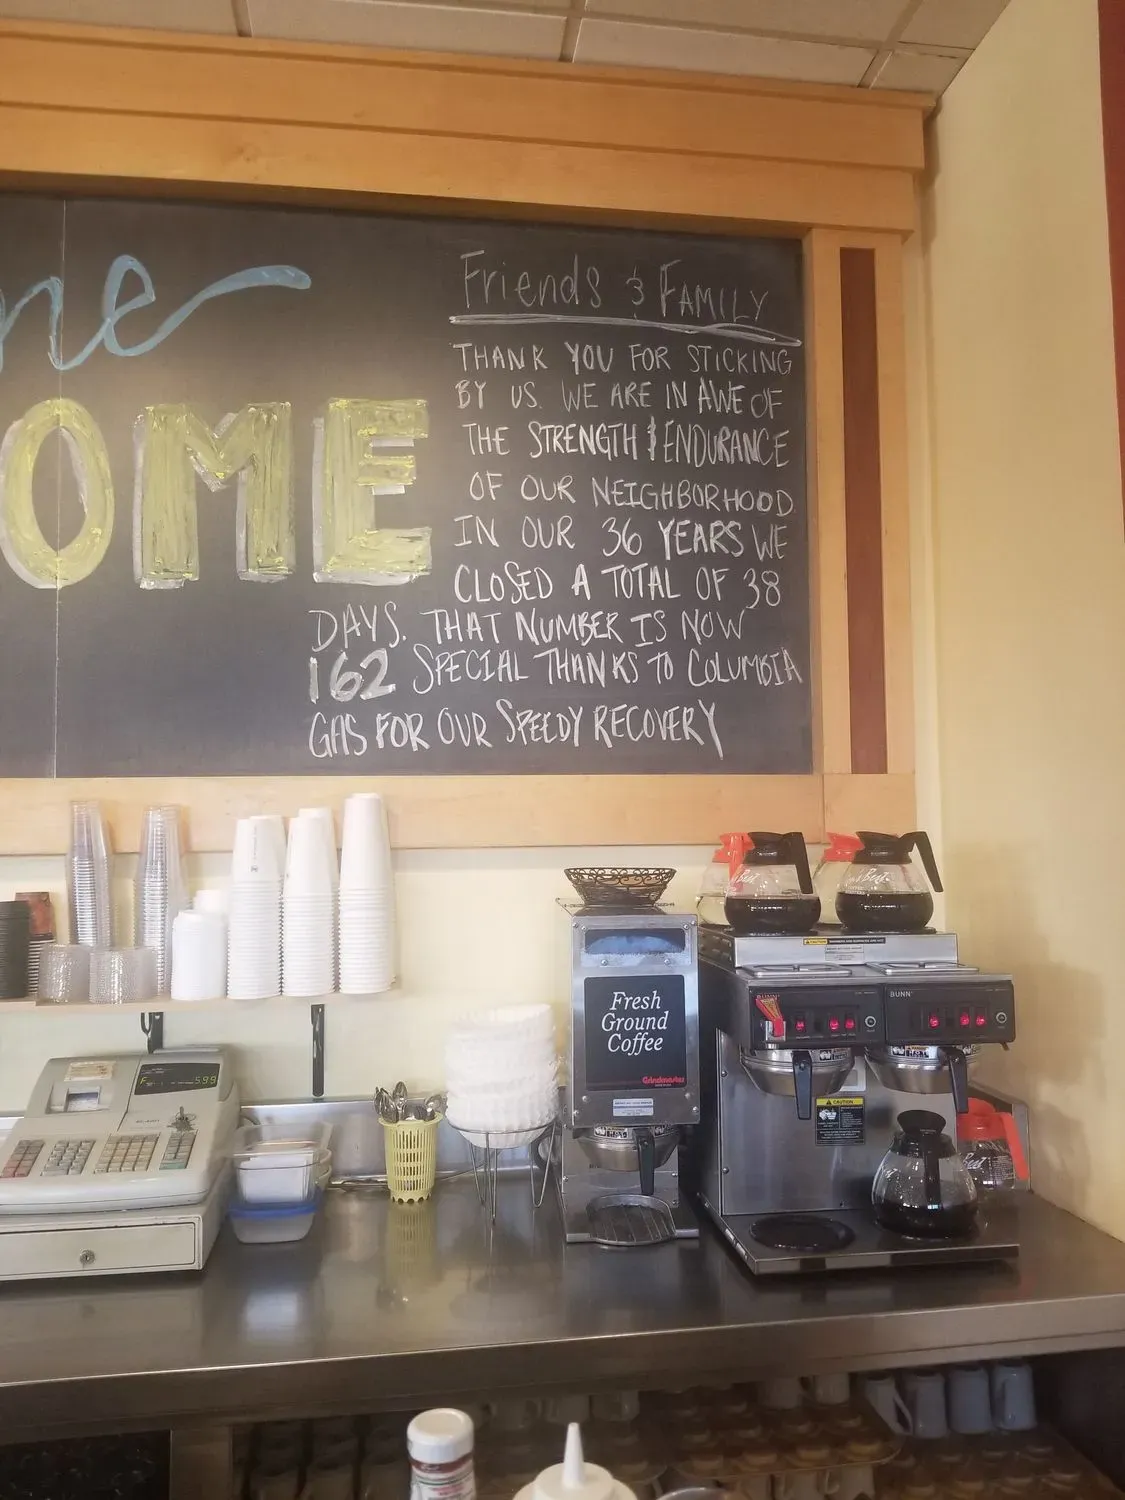 ne
OME
Friends & FAMILY
THANK YOU FOR STICKING
BY US. WE ARE IN AWE OF
THE STRENGTH & ENDURANCE
OF OUR NEIGHBORHOOD
IN OUR 36 YEARS WE
CLOSED A TOTAL OF 38
DAYS. THAT NUMBER IS NOW
162 SPECIAL THANKS TO COLUMBIA
GAS FOR OUR SPEEDY RECOVERY
Fresh
Ground
Coffee
Grindmaster
CAUTION
BUNN
BUNN
CAUTION
5.99
Best
Best
Best